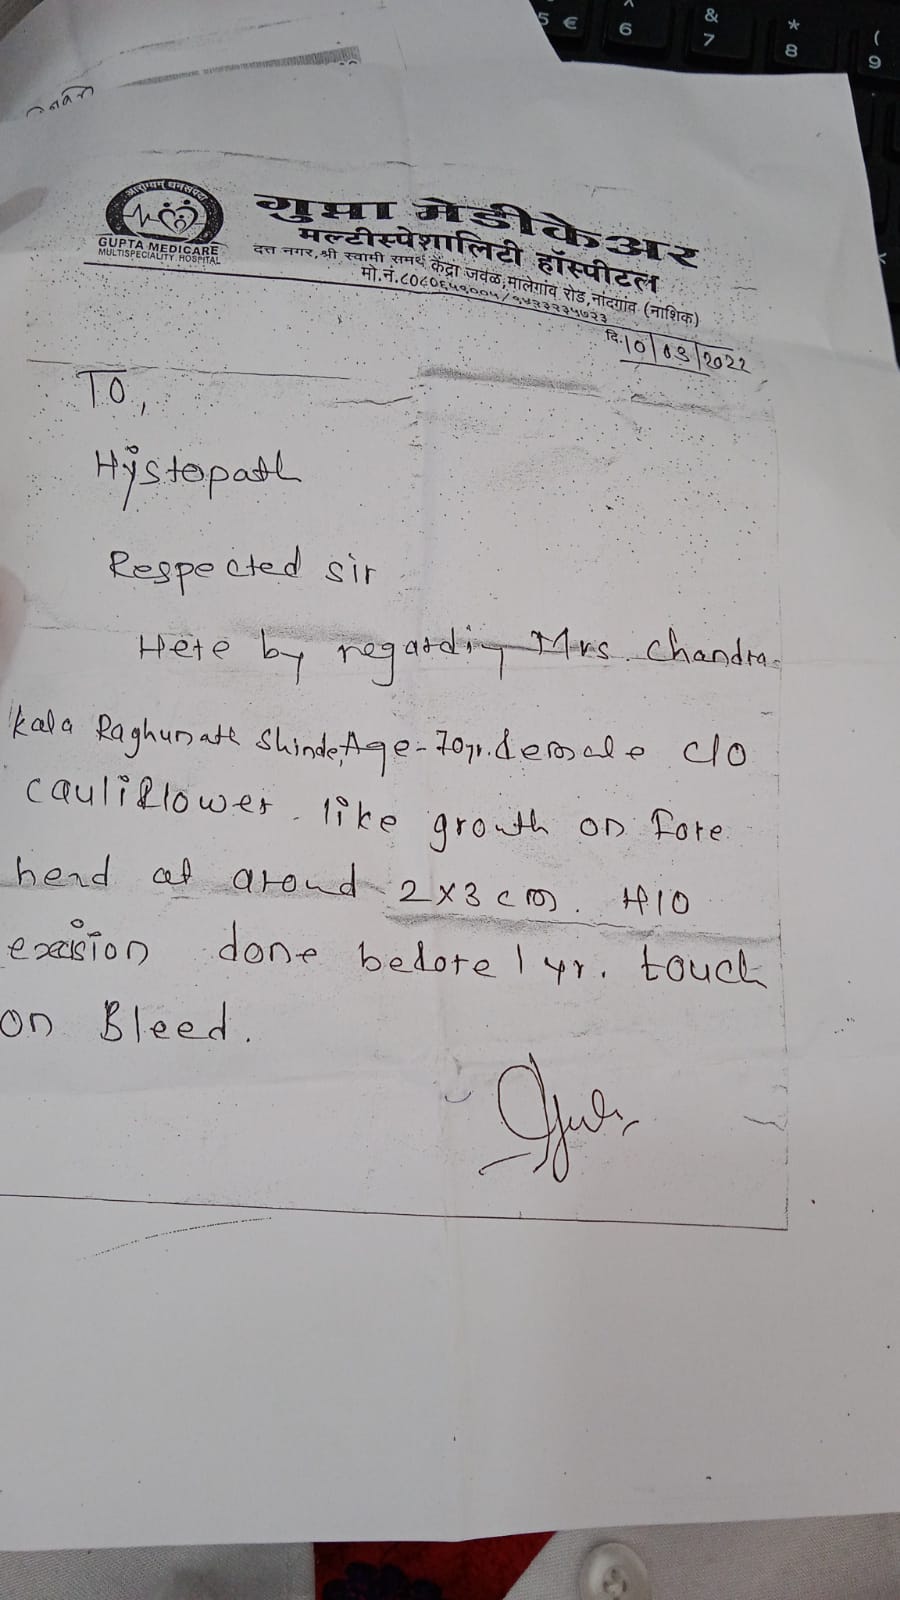 आरोग्यम् धनसंपदा
GUPTA MEDICARE
MULTISPECIALITY HOSPITAL
गुप्ता मेडीकेअर
मल्टीस्पेशालिटी हॉस्पीटल
दत्त नगर, श्री स्वामी समर्थ केंद्रा जवळ, मालेगांव रोड, नांदगांव (नाशिक)
मो.नं. ८०८०६५१००५/९५२३२३५७२३
दि. 10/03/2022
TO,
Hystopath
Respected sir
Here by regarding Mrs. Chandra-
kala Raghunath Shinde, Age-70yr. female c/o
cauliflower like growth on Fore
head at around 2x3 cm. H/O
excision done before 1 yr. touch
on Bleed.
5 €
^ 6
& 7
* 8
( 9